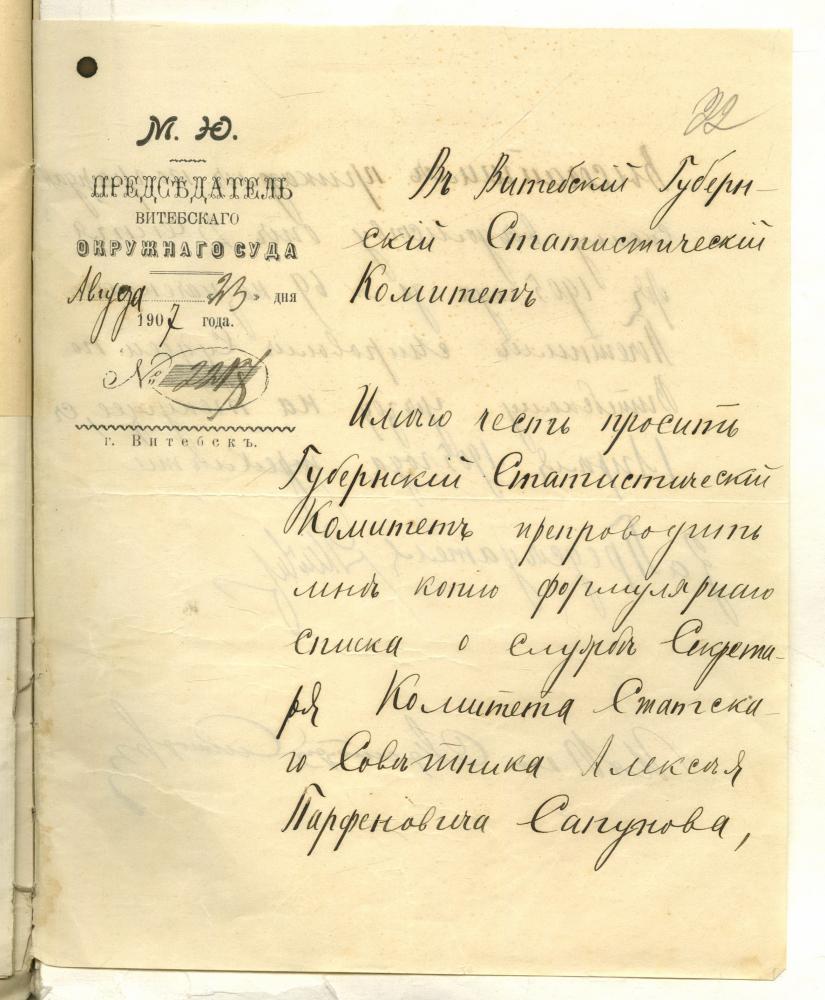 22
М. Ю.
ПРЕДСѢДАТЕЛЬ
ВИТЕБСКАГО
ОКРУЖНАГО СУДА
Августа 23 » дня
1907 года.
№
г. Витебскъ.
Въ Витебскій Губерн-
скій Статистическій
Комитетъ
Имѣю честь просить
Губернскій Статистическій
Комитетъ препроводить
мнѣ копію формулярнаго
списка о службѣ Секрета-
ря Комитета Статска-
го Совѣтника Алексѣя
Парфеновича Сапунова,